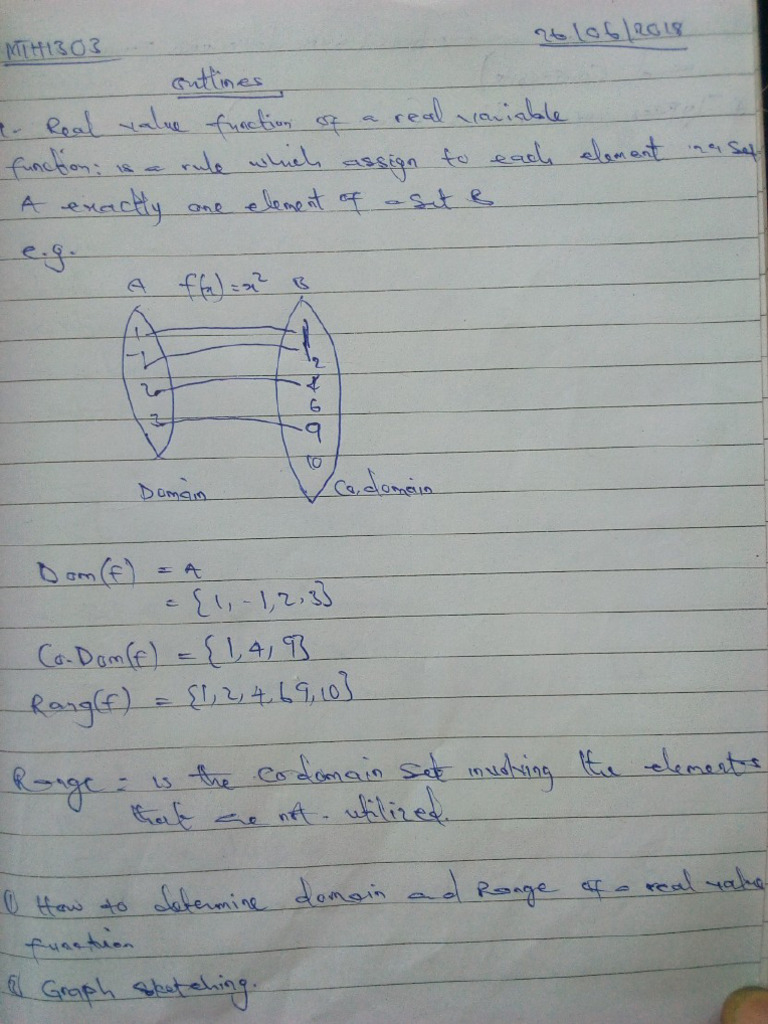 MTH1303
26/06/2018
outlines
1- Real value function of a real variable
function: is a rule which assign to each element in a set
A exactly one element of a set B
e.g.
A f(x)=x² B
1 1
-1 1
2
2 4
6
3 9
10
Domain Co.domain
Dom(f) = A
= {1,-1,2,3}
Co.Dom(f) = {1,4,9}
Rang(f) = {1,2,4,6 9,10}
Range = is the codomain set involving the elements
that are not utilized.
(i) How to determine domain and Range of a real value
function
(ii) Graph sketching.